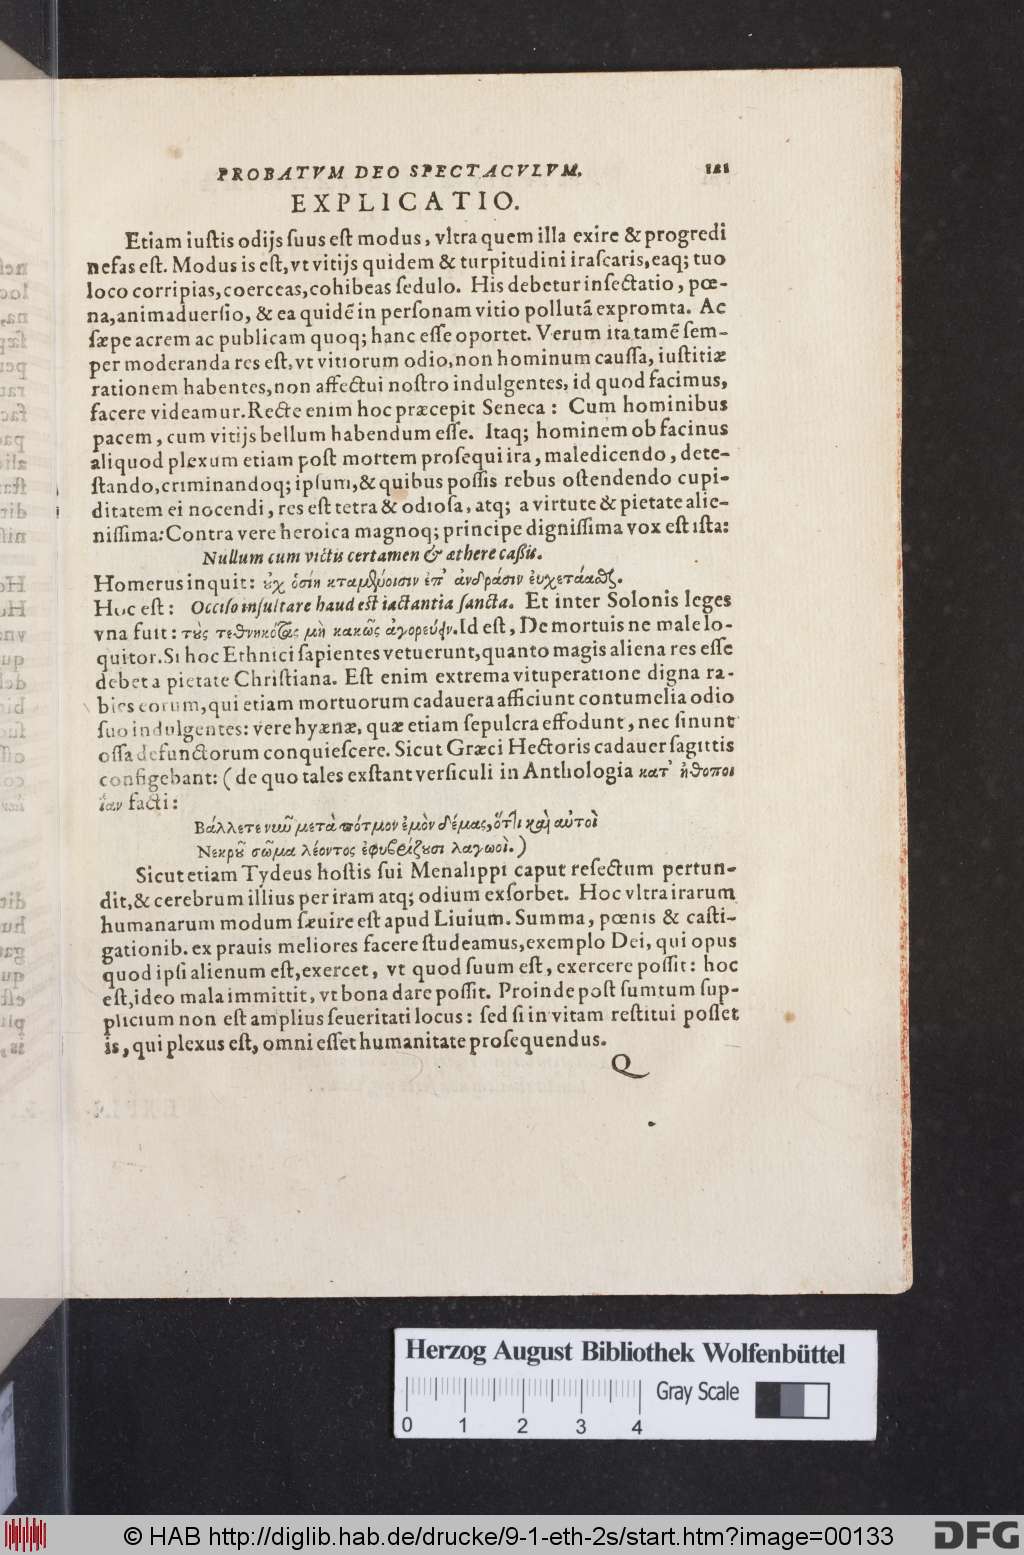 PROBATVM DEO SPECTACVLVM. 121
EXPLICATIO.
Etiam iustis odijs suus est modus, vltra quem illa exire & progredi
nefas est. Modus is est, vt vitijs quidem & turpitudini irascaris, eaq; tuo
loco corripias, coerceas, cohibeas sedulo. His debetur insectatio, pœ-
na, animaduersio, & ea quidẽ in personam vitio pollutã expromta. Ac
sæpe acrem ac publicam quoq; hanc esse oportet. Verum ita tamẽ sem-
per moderanda res est, vt vitiorum odio, non hominum caussa, iustitiæ
rationem habentes, non affectui nostro indulgentes, id quod facimus,
facere videamur. Recte enim hoc præcepit Seneca: Cum hominibus
pacem, cum vitijs bellum habendum esse. Itaq; hominem ob facinus
aliquod plexum etiam post mortem prosequi ira, maledicendo, dete-
stando, criminandoq; ipsum, & quibus possis rebus ostendendo cupi-
ditatem ei nocendi, res est tetra & odiosa, atq; a virtute & pietate alie-
nissima: Contra vere heroica magnoq; principe dignissima vox est ista:
Nullum cum victis certamen & æthere cassis.
Homerus inquit: οὐχ ὁσίη κταμένοισιν ἐπ' ἀνδράσιν εὐχετάασθαι.
Hoc est: Occiso insultare haud est iactantia sancta. Et inter Solonis leges
vna fuit: τοὺς τεθνηκότας μὴ κακῶς ἀγορεύειν. Id est, De mortuis ne male lo-
quitor. Si hoc Ethnici sapientes vetuerunt, quanto magis aliena res esse
debet a pietate Christiana. Est enim extrema vituperatione digna ra-
bies eorum, qui etiam mortuorum cadauera afficiunt contumelia odio
suo indulgentes: vere hyænæ, quæ etiam sepulcra effodiunt, nec sinunt
ossa defunctorum conquiescere. Sicut Græci Hectoris cadauer sagittis
configebant: (de quo tales exstant versiculi in Anthologia κατ' ἠθοποι
ίαν facti:
Βάλλετε νῦν μετὰ πότμον ἐμὸν δέμας, ὅττι καὶ αὐτοὶ
Νεκροῦ σῶμα λέοντος ἐφυβρίζουσι λαγωοί.)
Sicut etiam Tydeus hostis sui Menalippi caput resectum pertun-
dit, & cerebrum illius per iram atq; odium exsorbet. Hoc vltra irarum
humanarum modum sæuire est apud Liuium. Summa, pœnis & casti-
gationib. ex prauis meliores facere studeamus, exemplo Dei, qui opus
quod ipsi alienum est, exercet, vt quod suum est, exercere possit: hoc
est, ideo mala immittit, vt bona dare possit. Proinde post sumtum sup-
plicium non est amplius seueritati locus: sed si in vitam restitui posset
is, qui plexus est, omni esset humanitate prosequendus.
Q
Herzog August Bibliothek Wolfenbüttel
Gray Scale
0 1 2 3 4
© HAB http://diglib.hab.de/drucke/9-1-eth-2s/start.htm?image=00133
DFG